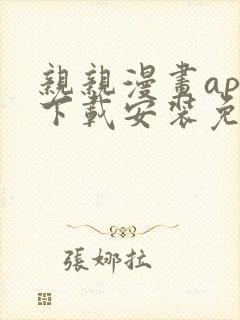 親親漫畫ap
下載安装免
張娜拉